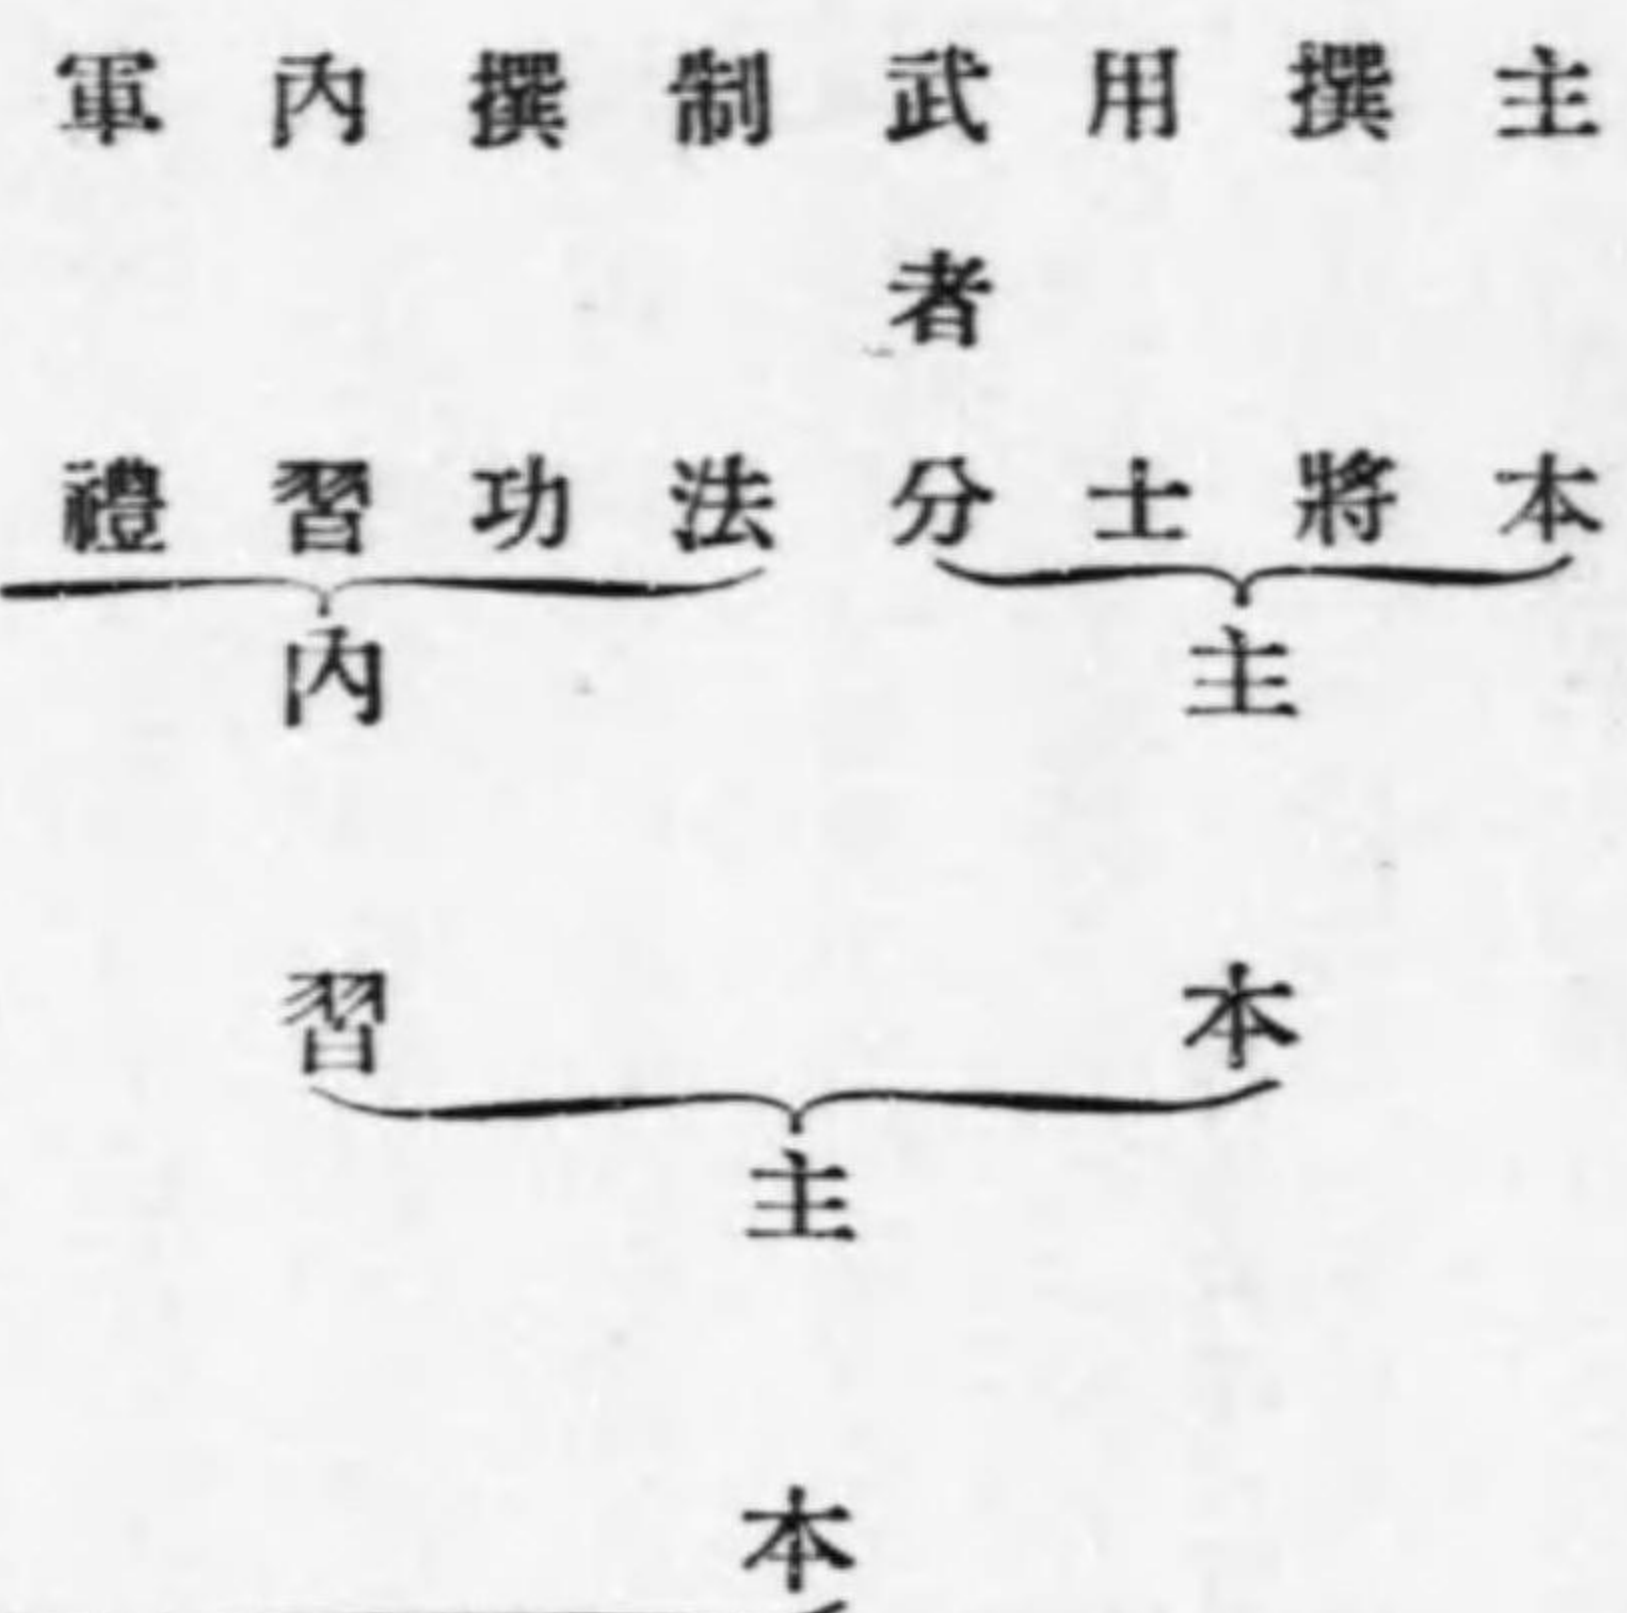 主本
撰將
用士
武者分
制法
撰功
內習
軍禮
主本
內習
主本